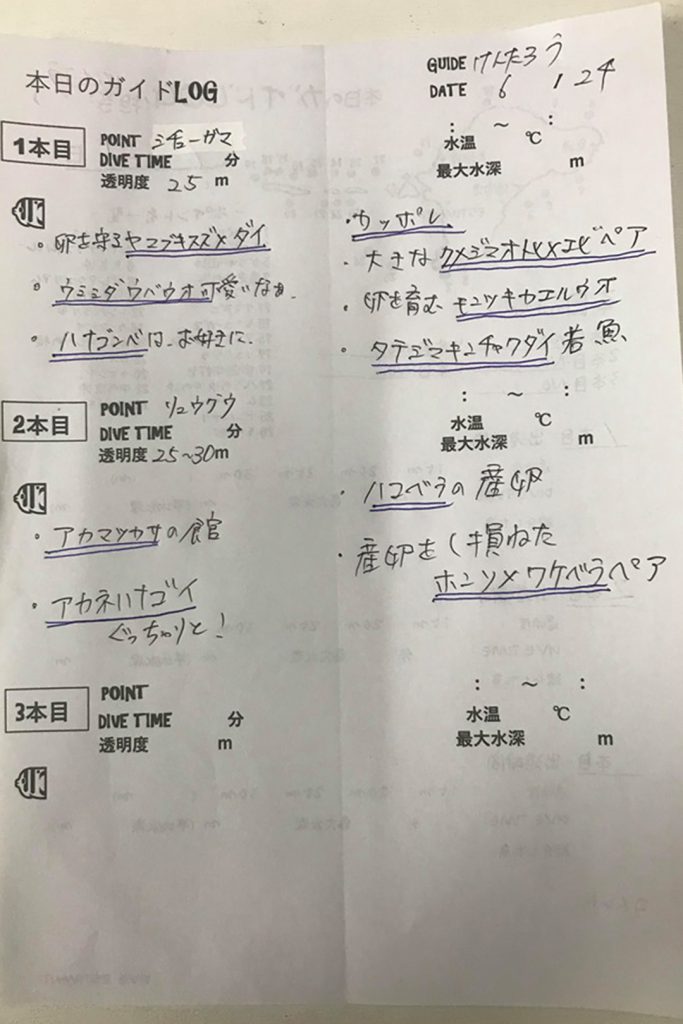 本日のガイドLOG
GUIDE けんたろう
DATE 6 1 24
1本目
POINT ミチューガマ
DIVE TIME 分
透明度 25 m
: ~ :
水温 ℃
最大水深 m
・卵を守るヤマブキスズメダイ
・ウミシダウバウオ可愛いなぁ。
・ハナゴンベは、お好きに。
・カッポレ
・大きなクメジマオトヒメエビペア
・卵を育む モンツキカエルウオ
・タテジマキンチャクダイ若魚
2本目
POINT リュウグウ
DIVE TIME 分
透明度 25~30m
: ~ :
水温 ℃
最大水深 m
・アカマツカサの館
・アカネハナゴイ
ぐっちゃりと!
・ハコベラの産卵
・産卵をし損ねた
ホンソメワケベラペア
3本目
POINT
DIVE TIME 分
透明度 m
: ~ :
水温 ℃
最大水深 m